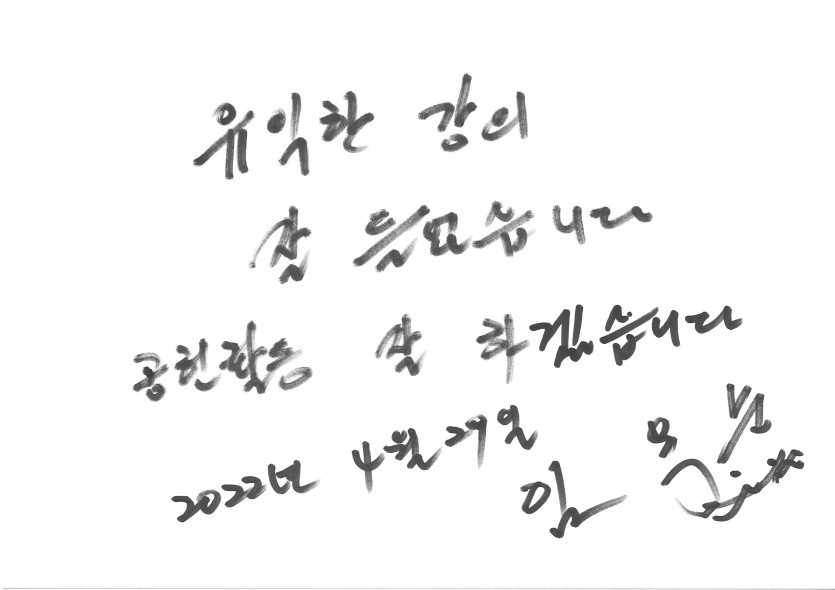 유익한 강의
잘 들었습니다
공헌활동 잘 하겠습니다
2022년 4월 29일